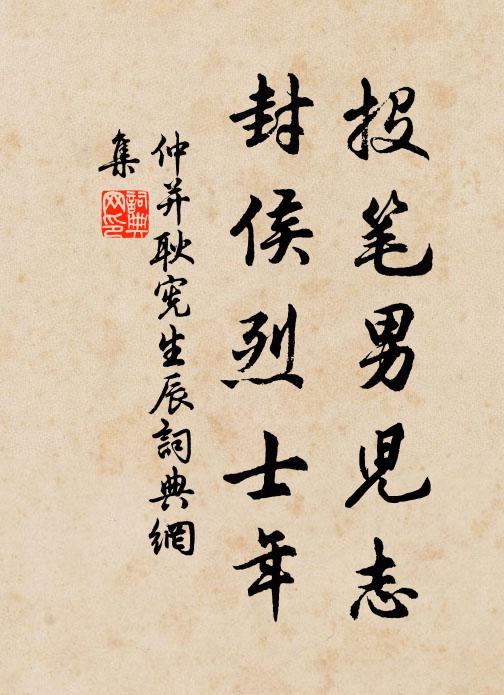 投笔男児志
封侯烈士年
仲并耿宪生辰詞典網
集
詞典网印